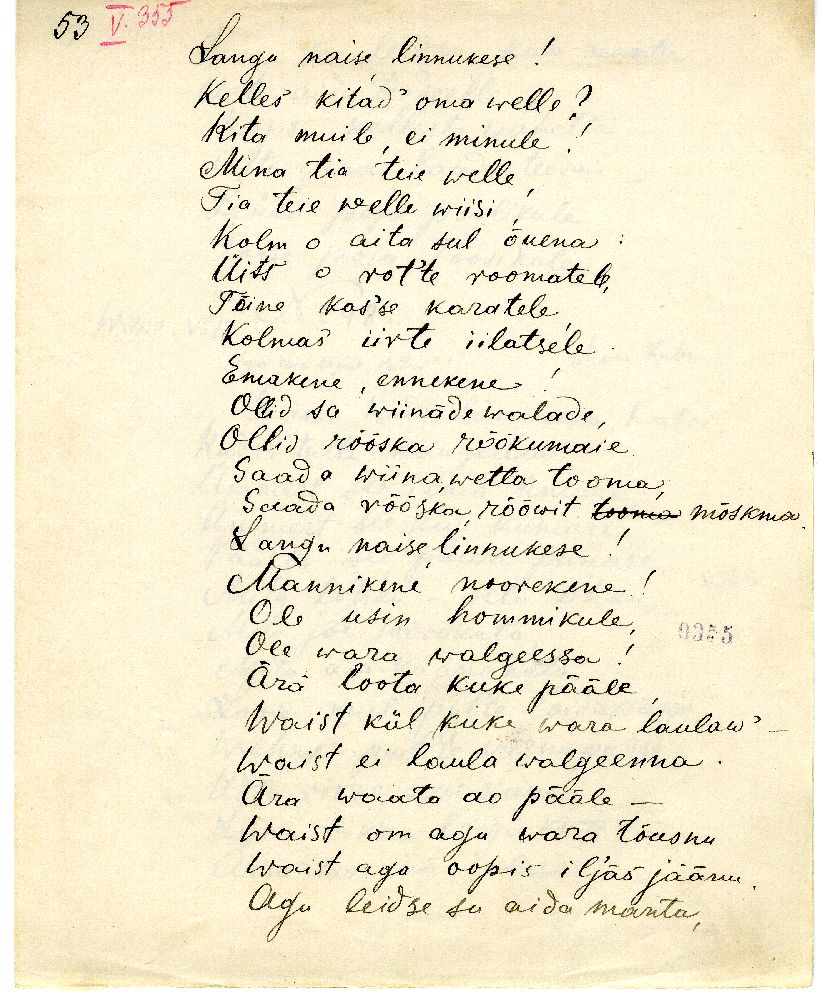 53 V. 355
Langu naise, linnukese!
Kelles kitäd' oma welle?
Kita muile, ei minule!
Mina tia teie welle,
Tia teie welle wiisi,
Kolm o aita sul õuena:
Üits o rot'te roomatele,
Tõine kas'se karatele,
Kolmas iirte iilatsele.
Emakene, ennekene!
Ollid sa wiinäde walade,
Ollid rõõska rõõkumaie.
Saada wiina, wetta tooma,
Saada rõõska, rööwit tooma mõskma.
Langu naise, linnukese!
Mannikene, noorekene!
Ole usin hommikule,
0355
Ole wara walgeessa!
Ärä loota kuke pääle,
Waist kül kuke wara laulaw' –
Waist ei laula walgeenna.
Ära waata ao pääle –
Waist om agu wara tõusnu
Waist agu oopis iljäs jäänu.
Agu leidse su aida manta,